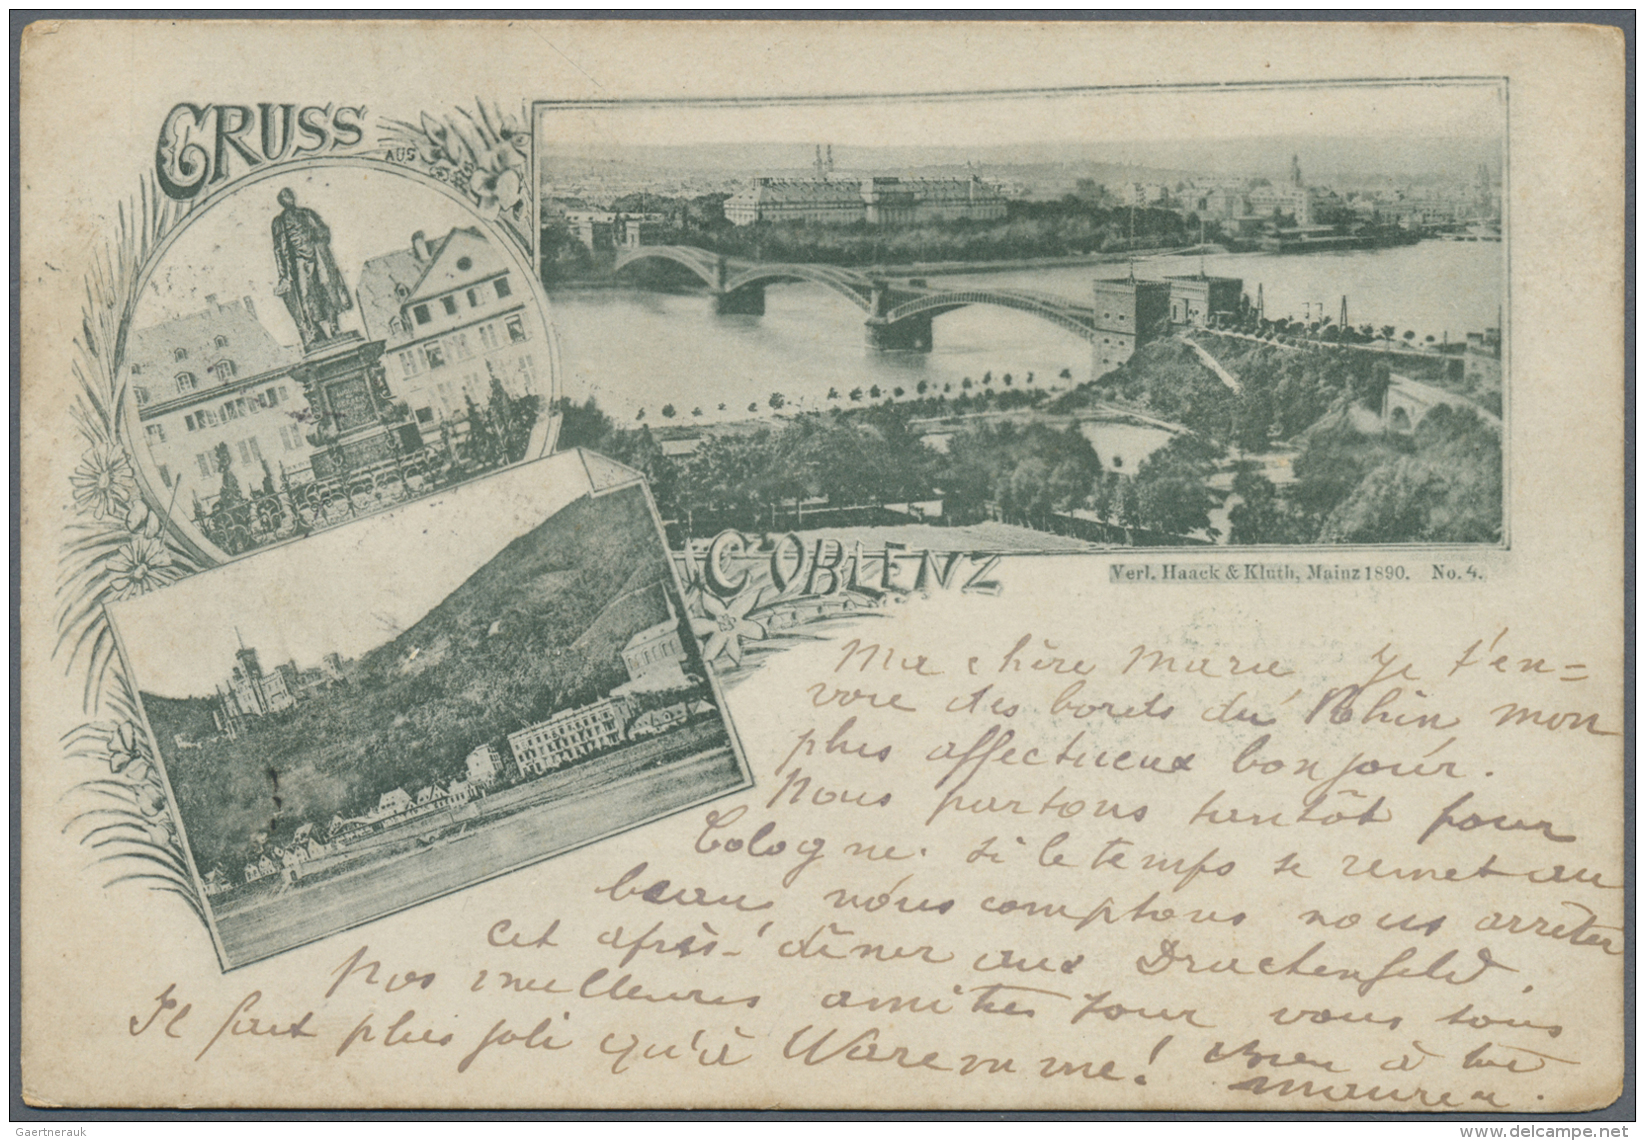 GRUSS
AUS
COBLENZ
Verl. Haack & Kluth, Mainz 1890. No. 4.
Ma chère Marie Je t'en=
voie des bords du Rhin mon
plus affectueux bonjour.
Nous partons tantôt pour
Cologne. si le temps se remet au
beau nous comptons nous arrêter
cet après-dîner aux Drachenfeld.
Nos meilleures amitiés pour vous tous
Il fait plus joli qu'à Waremme! à toi
Gaertnerauk
www.delcampe.net